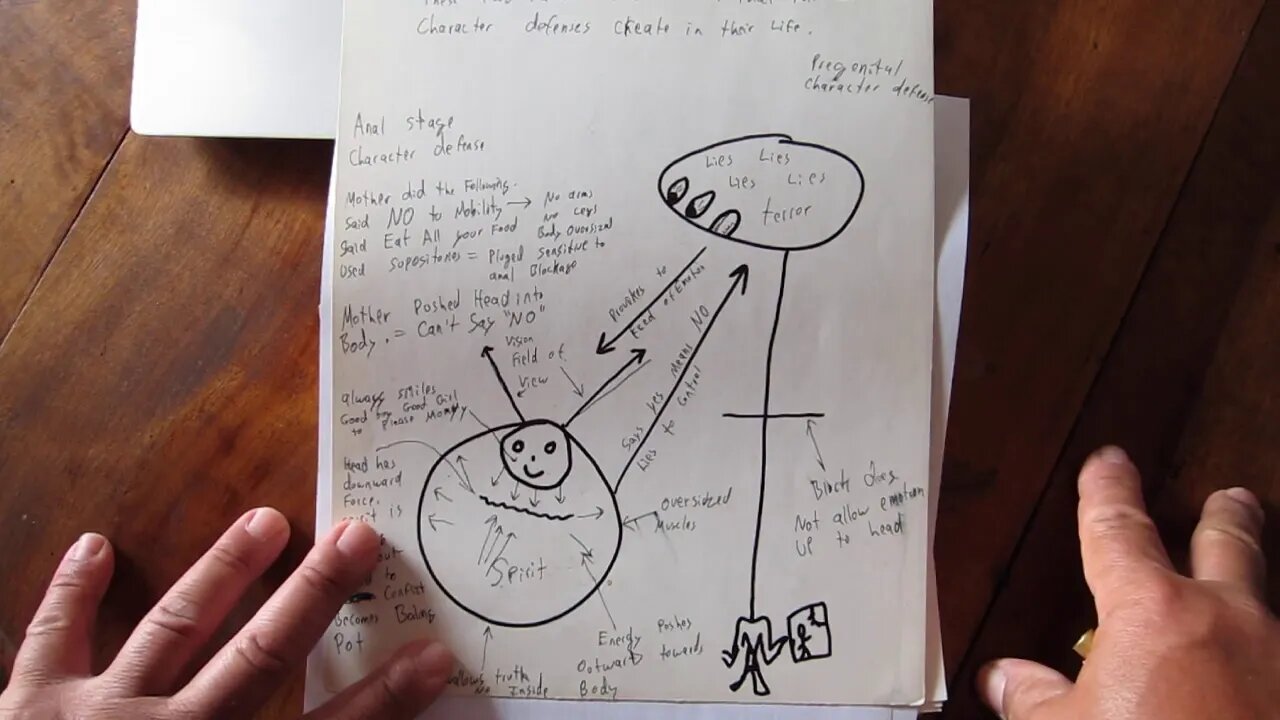 Character defenses create in their Life.
Pregenital
character defense
Anal stage
Character defense
Mother did the Following.
Said NO to Mobility → No arms
No Legs
Said Eat All your Food Body Oversized
Used Supositories = Pluged Sensitive to
anal Blockage
Mother Poshed Head into
Body. = Can't Say "NO"
Vision
Field of
View
always smiles
Good boy Good Girl
to Please Mommy
Head has
downward
Force.
is
Conflict
Becomes Boiling
Pot
Lies Lies
Lies Lies
terror
Provokes to
Feed of Emotion
Says Yes Means NO
Lies to Control
Oversized
Muscles
Spirit
Block does
Not allow emotion
UP to head
Energy Poshes
Outward towards
Body
truth
No Inside